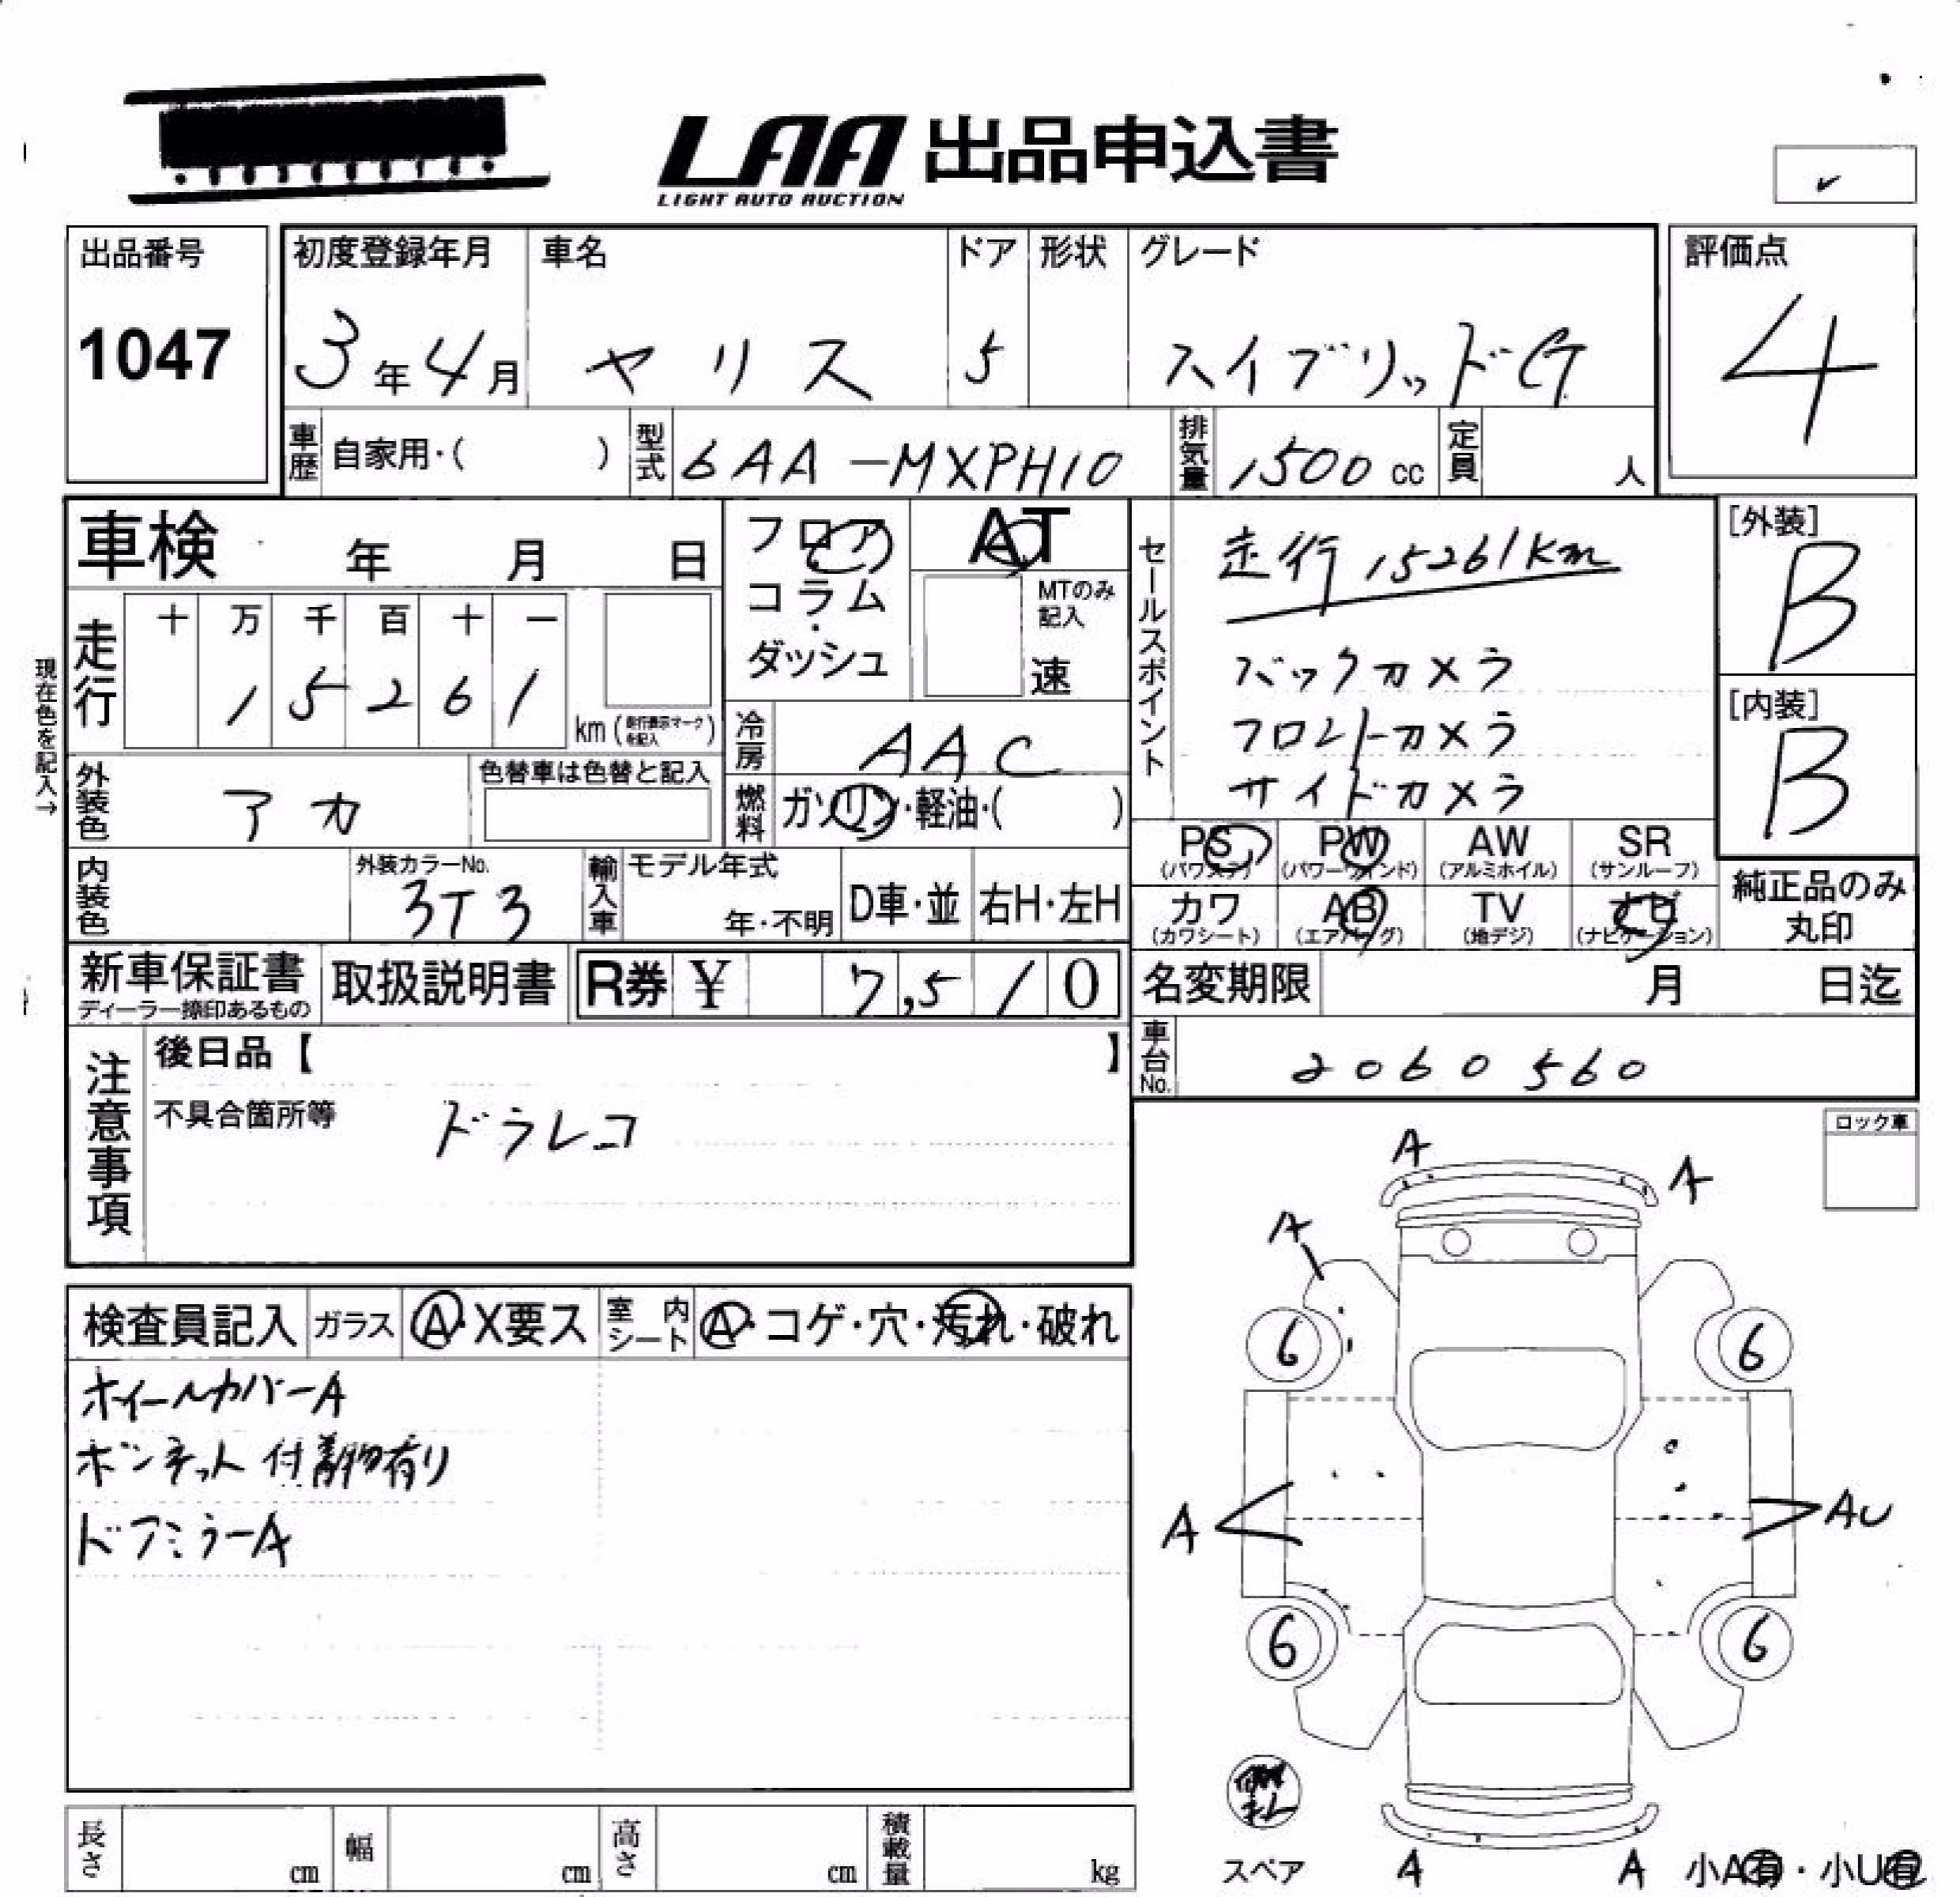 LAA 出品申込書
LIGHT AUTO AUCTION
出品番号 初度登録年月 車名 ドア 形状 グレード 評価点
1047 3年4月 ヤリス 5 ハイブリッドG 4
車歴 自家用・( ) 型式 6AA-MXPH10 排気量 1500cc 定員 人
車検 年 月 日
フロア・コラム・ダッシュ
AT
MTのみ記入
速
セールスポイント
走行 15261km
バックカメラ
フロントカメラ
サイドカメラ
[外装]
B
[内装]
B
現在色を記入→
走行 十 万 千 百 十 一
1 5 2 6 1
km (走行表示マークを記入)
冷房 AAC
外装色 アカ 色替車は色替と記入
燃料 ガソリン・軽油・( )
PS (パワステ) PW (パワーウインド) AW (アルミホイル) SR (サンルーフ)
カワ (カワシート) AB (エアバッグ) TV (地デジ) ナビ (ナビゲーション)
純正品のみ
丸印
内装色 外装カラーNo. 3T3 輸入車 モデル年式 年・不明 D車・並 右H・左H
新車保証書 ディーラー捺印あるもの 取扱説明書 R券 ¥ 7,510
名変期限 月 日迄
車台No. 2060560
注意事項
後日品【 】
不具合箇所等 ドラレコ
ロック車
検査員記入 ガラス A・X要ス 室内シート A・コゲ・穴・汚れ・破れ
ホイールカバーA
ボンネット付着物有り
ドアミラーA
A
A
A
6 6
A AU
6 6
スペア A A 小A有・小U有
長さ cm 幅 cm 高さ cm 積載量 kg